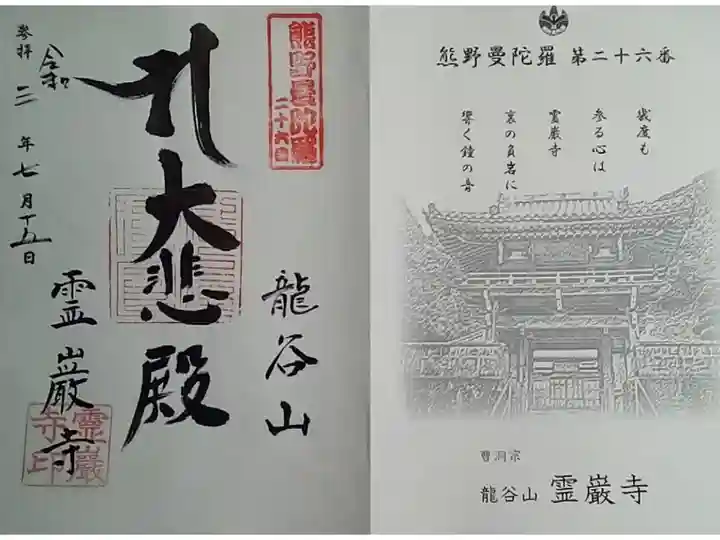 熊野曼陀羅
二十六番
大悲殿
龍谷山
霊巌寺
霊巌
寺印
参拝
令和二年七月十五日
熊野曼陀羅 第二十六番
幾度も
参る心は
霊巌寺
裏の負岩に
響く鐘の音
曹洞宗
龍谷山 霊巌寺